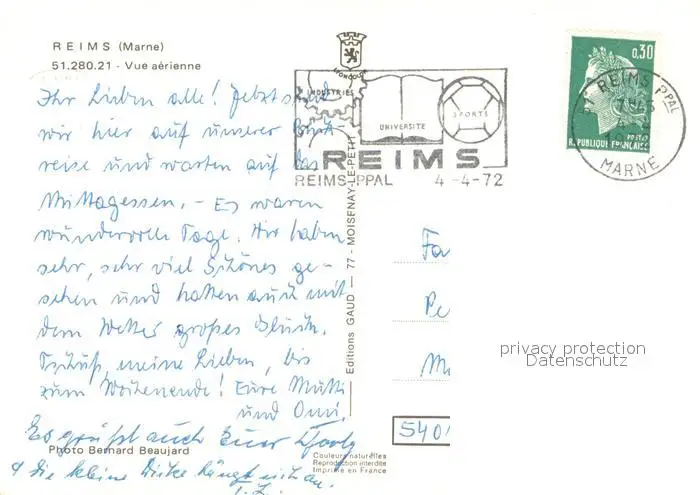 REIMS (Marne)
51.280.21 - Vue aérienne
Ihr Lieben alle! Jetzt sind
wir hier auf unserer Rück-
reise und warten auf das
Mittagessen. - Es waren
wundervolle Tage. Wir haben
sehr, sehr viel Schönes ge-
sehen und hatten auch mit
dem Wetter großes Glück.
Tschüß, meine Lieben, bis
zum Wochenende! Eure Mutti
und Omi.
Es grüßt auch Euer
Photo Bernard Beaujard
& die kleine Dicke hängt sich an.
Editions GAUD - 77 - MOISENAY-LE-PETIT
MONOCOLOR
INDUSTRIES
UNIVERSITE
SPORTS
REIMS
REIMS-PPAL 4-4-72
0,30
POSTES
REPUBLIQUE FRANÇAISE
REIMS PPAL
MARNE
Fa
Pe
M
540
privacy protection
Datenschutz
Couleurs naturelles
Reproduction interdite
Imprimé en France